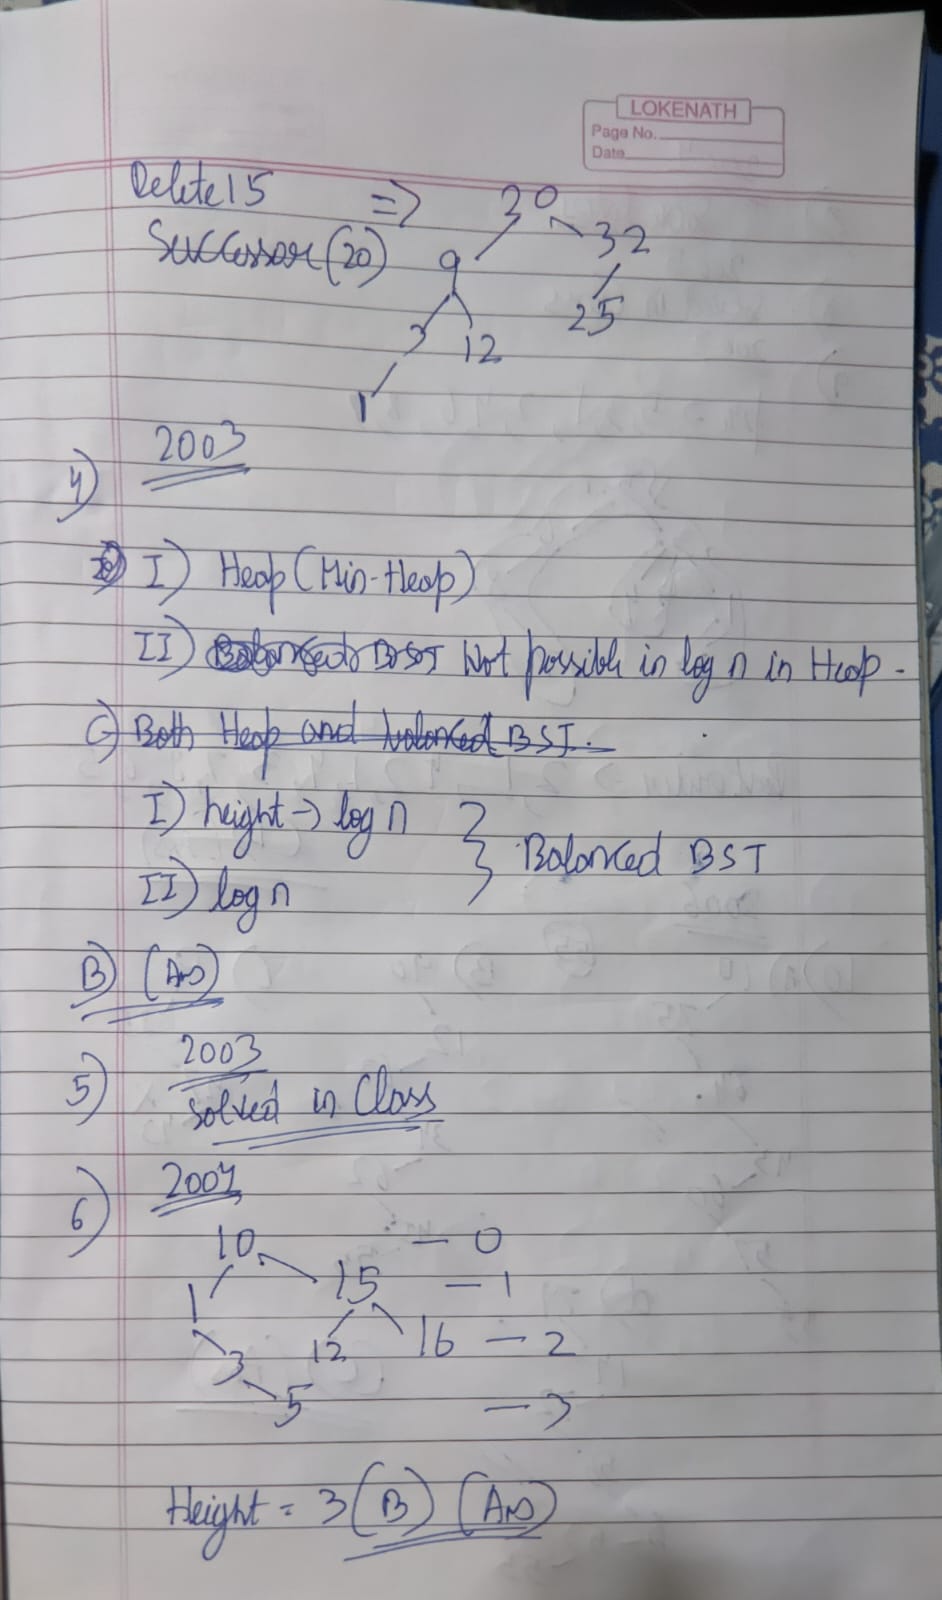 LOKENATH
Page No.
Date
Delete 15 => 20
Successor (20) 9 32
3 12 25
1
4) 2003
I) Heap (Min-Heap)
II) Balanced BST Not possible in log n in Heap.
C) Both Heap and balanced BST.
I) height -> log n
Balanced BST
II) log n
B) (Ans)
5) 2003
Solved in Class
6) 2004
10 - 0
1 15 - 1
3 12 16 - 2
5 - 3
Height = 3 (B) (Ans)